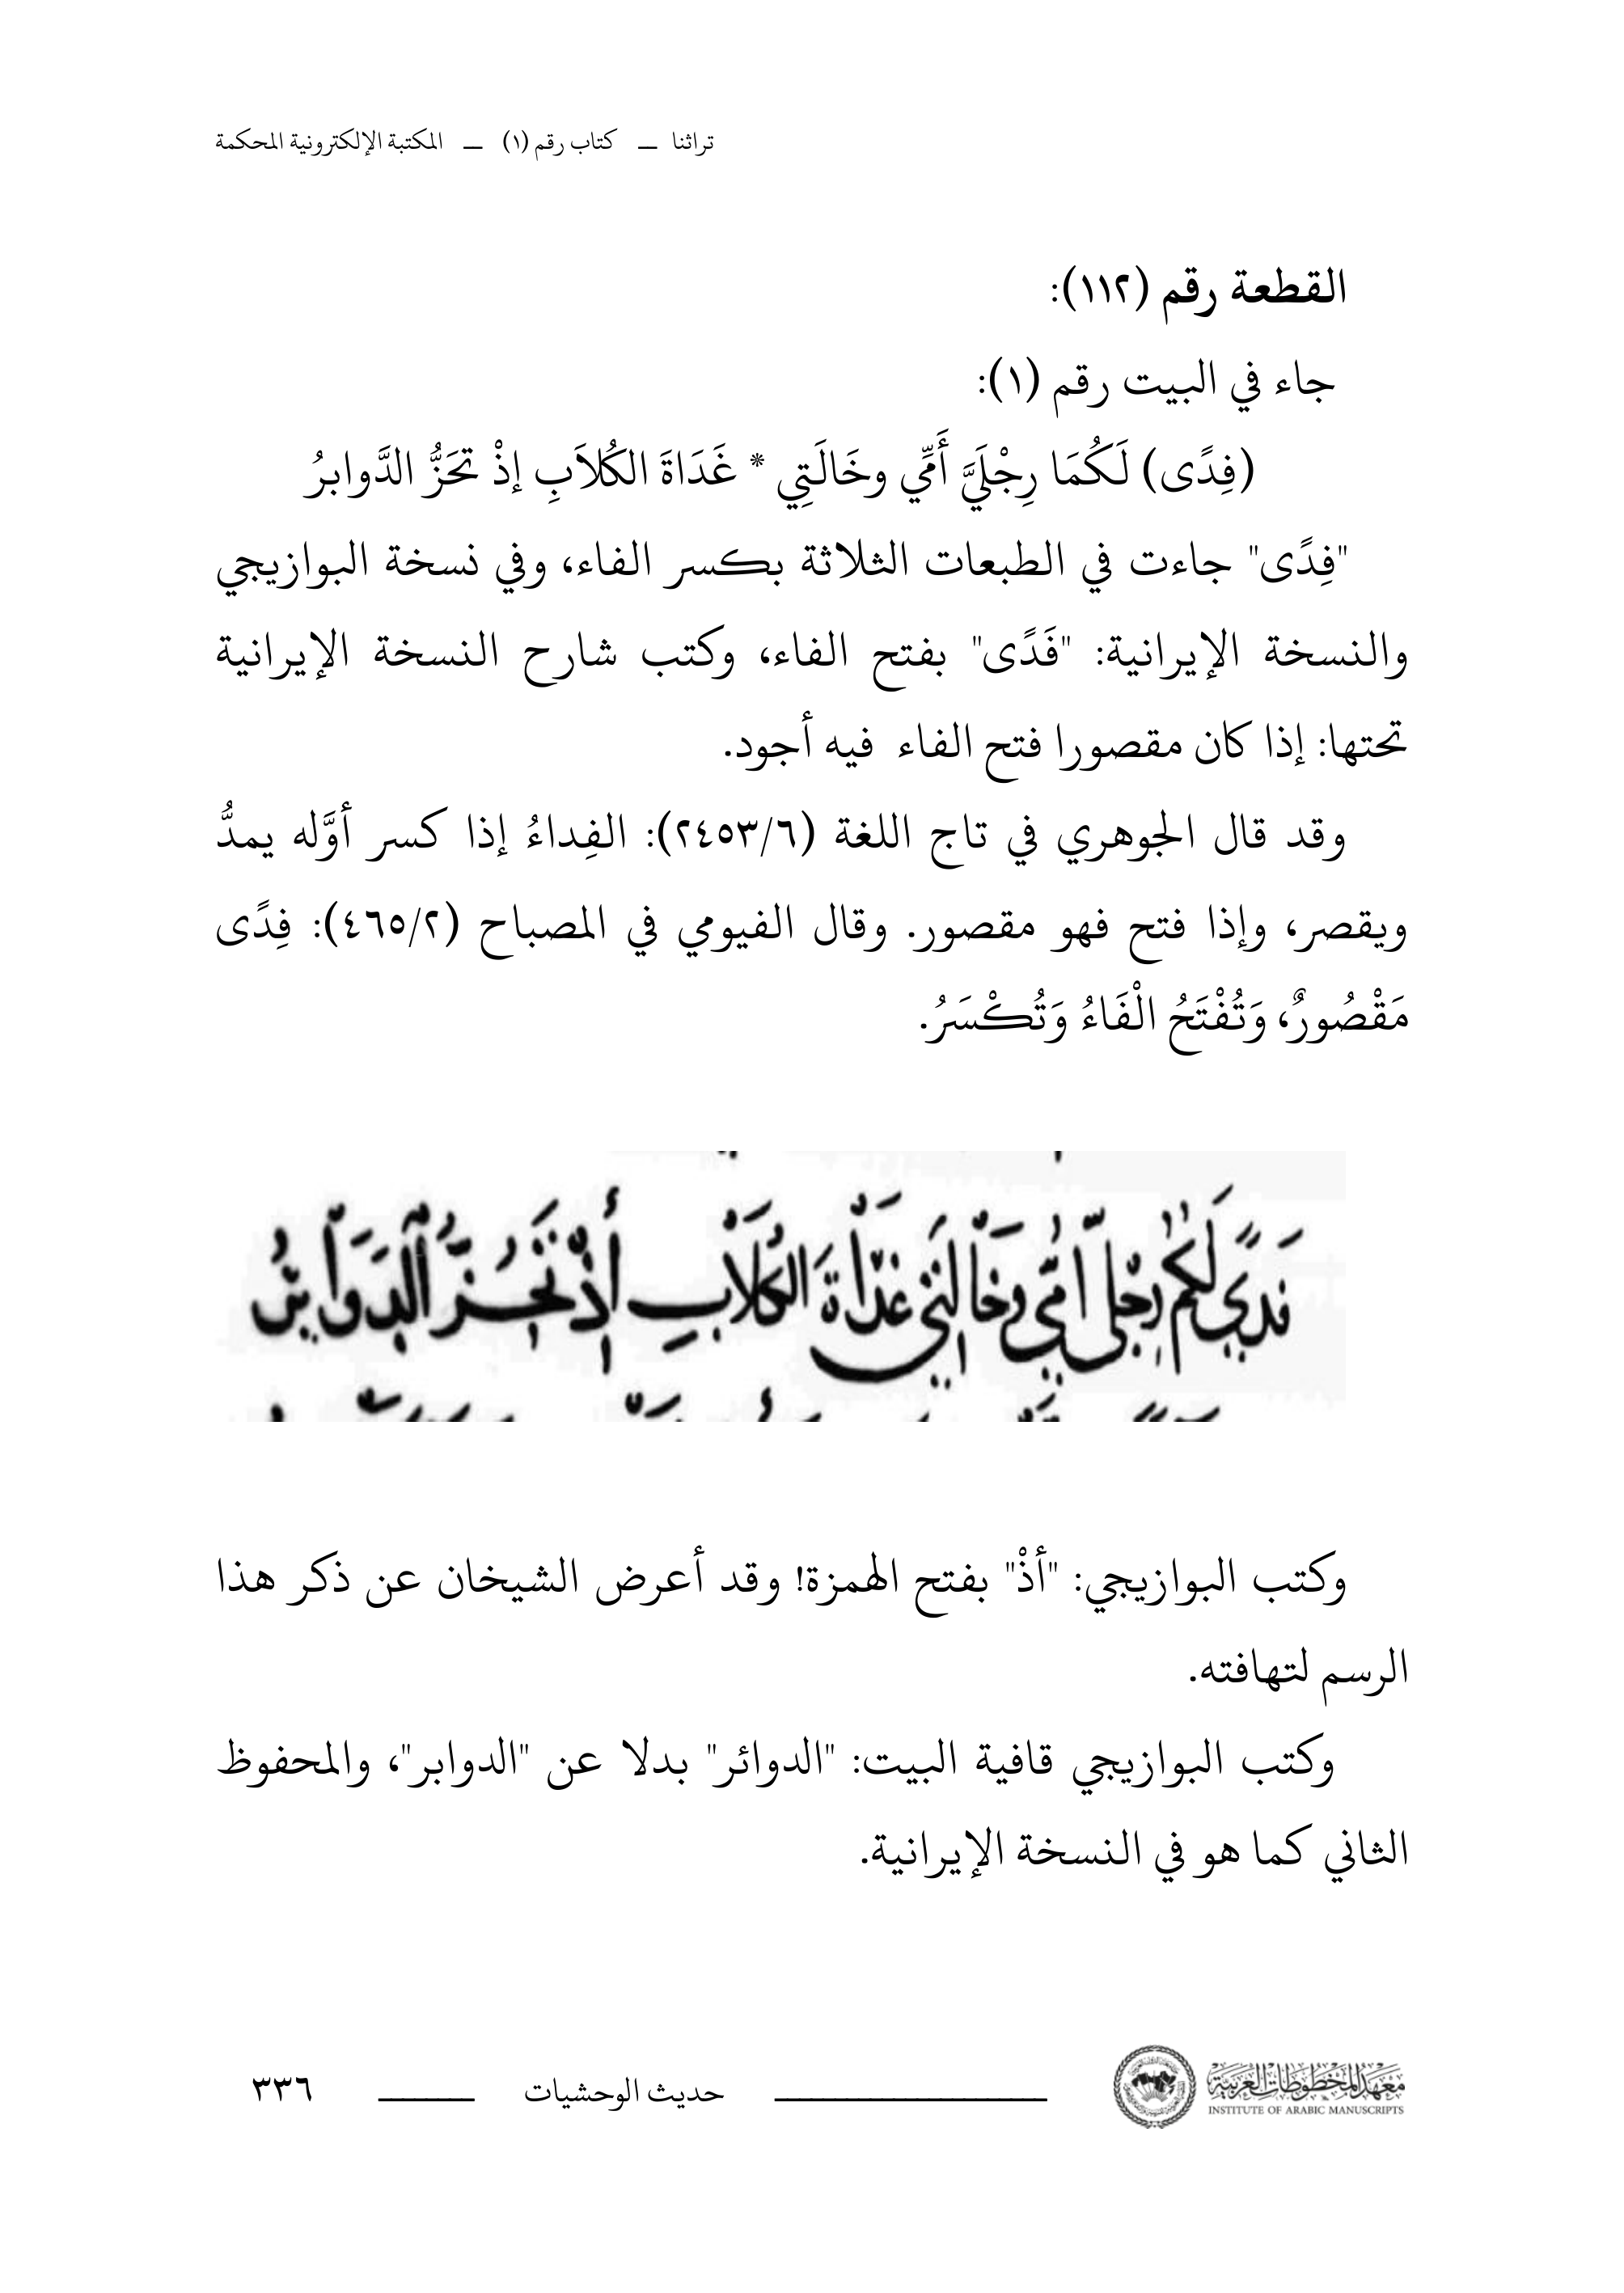 تراثنا — كتاب رقم (١) — المكتبة الإلكترونية المحكمة
القطعة رقم (١١٢):
جاء في البيت رقم (١):
(فِدًى) لَكُمَا رِجْلَيَّ أَمِّي وخَالَتِي * غَدَاةَ الكُلاَبِ إذْ تحَزُّ الدَّوابرُ
"فِدًى" جاءت في الطبعات الثلاثة بكسر الفاء، وفي نسخة البوازيجي
والنسخة الإيرانية: "فَدًى" بفتح الفاء، وكتب شارح النسخة الإيرانية
تحتها: إذا كان مقصورا فتح الفاء فيه أجود.
وقد قال الجوهري في تاج اللغة (٢٤٥٣/٦): الفِداءُ إذا كسر أوَّله يمدُّ
ويقصر، وإذا فتح فهو مقصور. وقال الفيومي في المصباح (٤٦٥/٢): فِدًى
مَقْصُورٌ، وَتُفْتَحُ الْفَاءُ وَتُكْسَرُ.
فَدًي لَكُم رِجْلَيّ أمّي وخَالَتي غَدَاةَ الكُلَابِ أذْ تَحُزُّ الدَوَائرُ
وكتب البوازيجي: "أذْ" بفتح الهمزة! وقد أعرض الشيخان عن ذكر هذا
الرسم لتهافته.
وكتب البوازيجي قافية البيت: "الدوائر" بدلا عن "الدوابر"، والمحفوظ
الثاني كما هو في النسخة الإيرانية.
معهد المخطوطات العربية
INSTITUTE OF ARABIC MANUSCRIPTS
حديث الوحشيات
٣٣٦